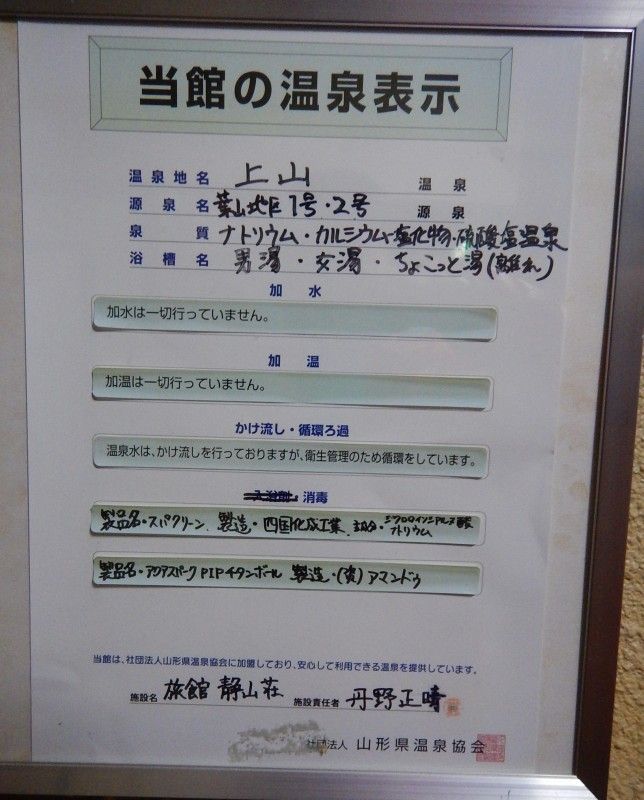 当館の温泉表示
温泉地名 上山 温泉
源泉名 葉山地区1号・2号 源泉
泉質 ナトリウム・カルシウム・塩化物・硫酸塩温泉
浴槽名 男湯・女湯・ちょこっと湯(離れ)
加水
加水は一切行っていません。
加温
加温は一切行っていません。
かけ流し・循環ろ過
温泉水は、かけ流しを行っておりますが、衛生管理のため循環をしています。
入浴剤・消毒
製品名・スパクリーン 製造・四国化成工業 主成分・ジクロロイソシアヌル酸ナトリウム
製品名・アクアスパーク PIPチタンボール 製造・(資)アマンドゥ
当館は、社団法人山形県温泉協会に加盟しており、安心して利用できる温泉を提供しています。
施設名 旅館 静山荘 施設責任者 丹野正晴
社団法人 山形県温泉協会